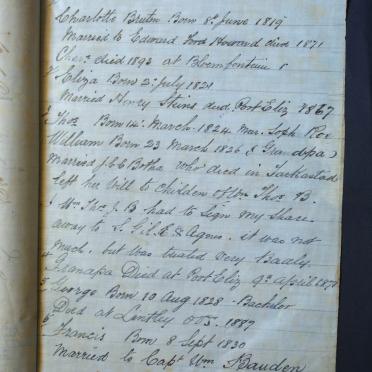 Charlotte Bruton Born 8th June 1819
Married to Edward Ford Howard died 1871
Char: died 1893 at Bloemfontein
Eliza Born 2d July 1821
Married Henry Stins died Port Eliz 1867
Thos Born 14th March 1824 Mar. Soph Rex
William Born 23 March 1826 (Grandpa)
Married J.E.C Botha who died in Tarkastad
left her will to children of Wm Thos B.
Wm Thos J.B had to sign my share
away to & Agnes. it was not
much. but was treated very Badly.
Grandpa Died at Port Eliz 9th April 187
George Born 10 Aug 1828 Bachelor
Died at O.F.S. 1887
Francis Born 8 Sept 1830
Married to Capt Wm Bauden